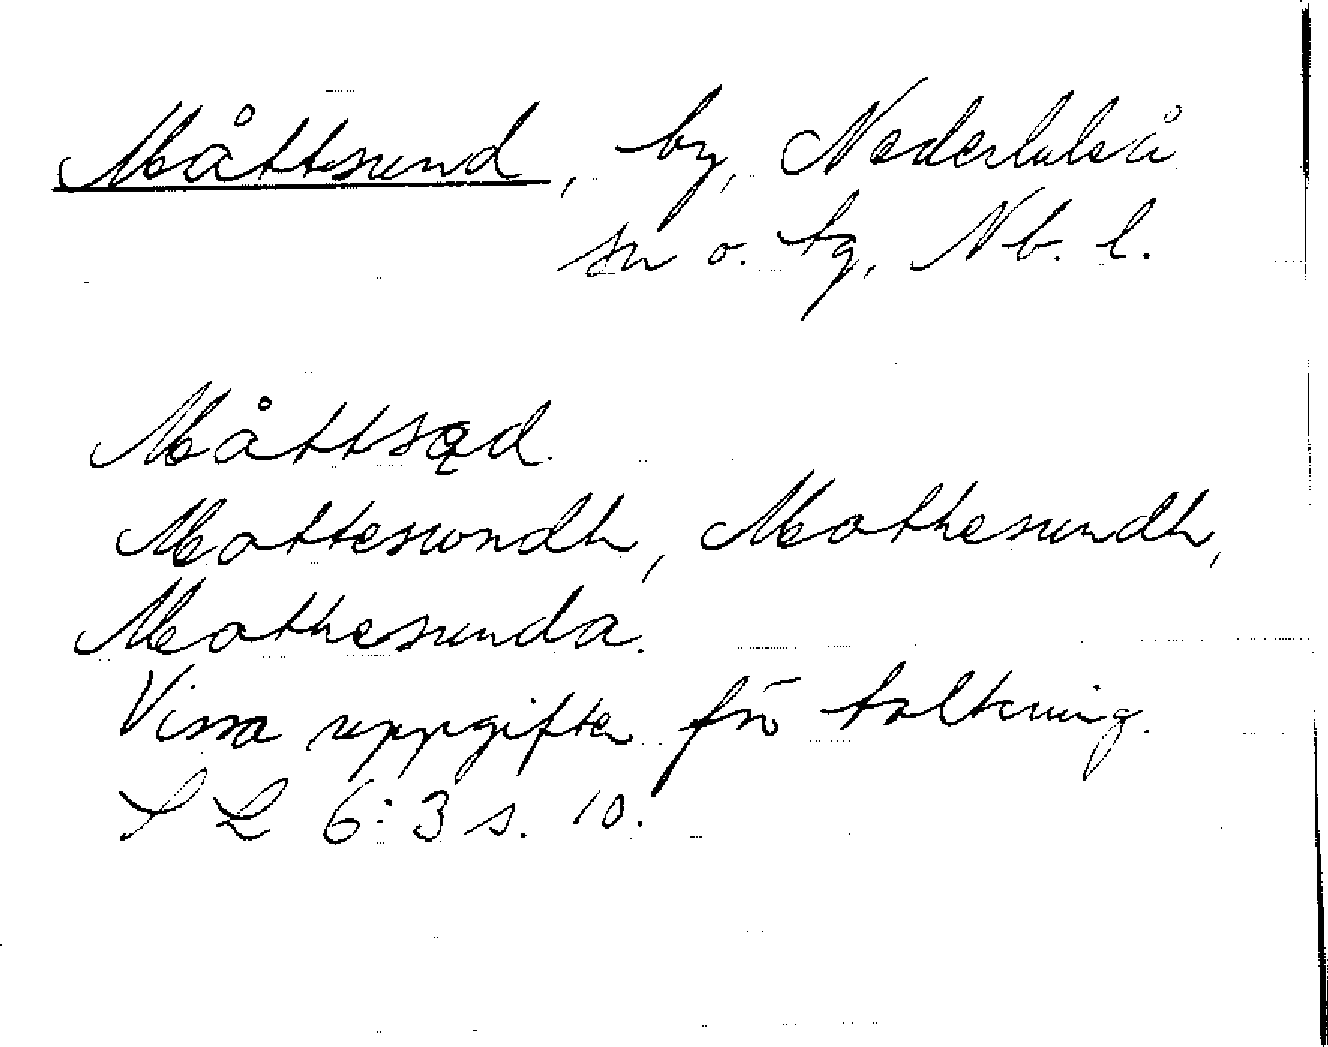 Måttsund, by, Nederluleå
sn o. tg, Nb. l.
Måttsod.
Mottesundh, Mothesundh,
Mothesunda.
Vissa uppgifter för toltkning.
SL 6:3 s. 10.